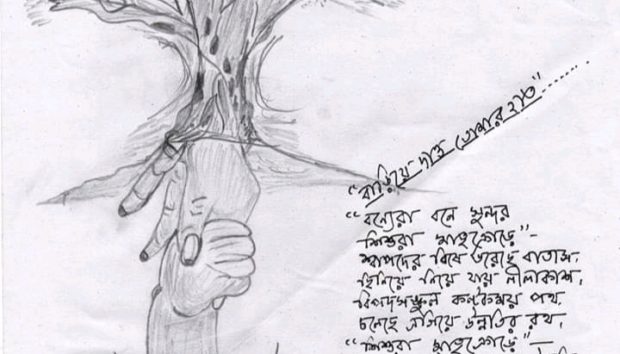 "বাড়িয়ে দাও তোমার হাত"......
"বন্যেরা বনে সুন্দর
শিশুরা মাতৃক্রোড়ে"-
শ্বাপদের বিষে ভরেছে বাতাস,
ছিনিয়ে নিয়ে যায় নীলাকাশ,
বিপদসঙ্কুল কন্টকময় পথ,
চলেছে এগিয়ে উন্নতির রথ,
"শিশুরা মাতৃক্রোড়ে"-